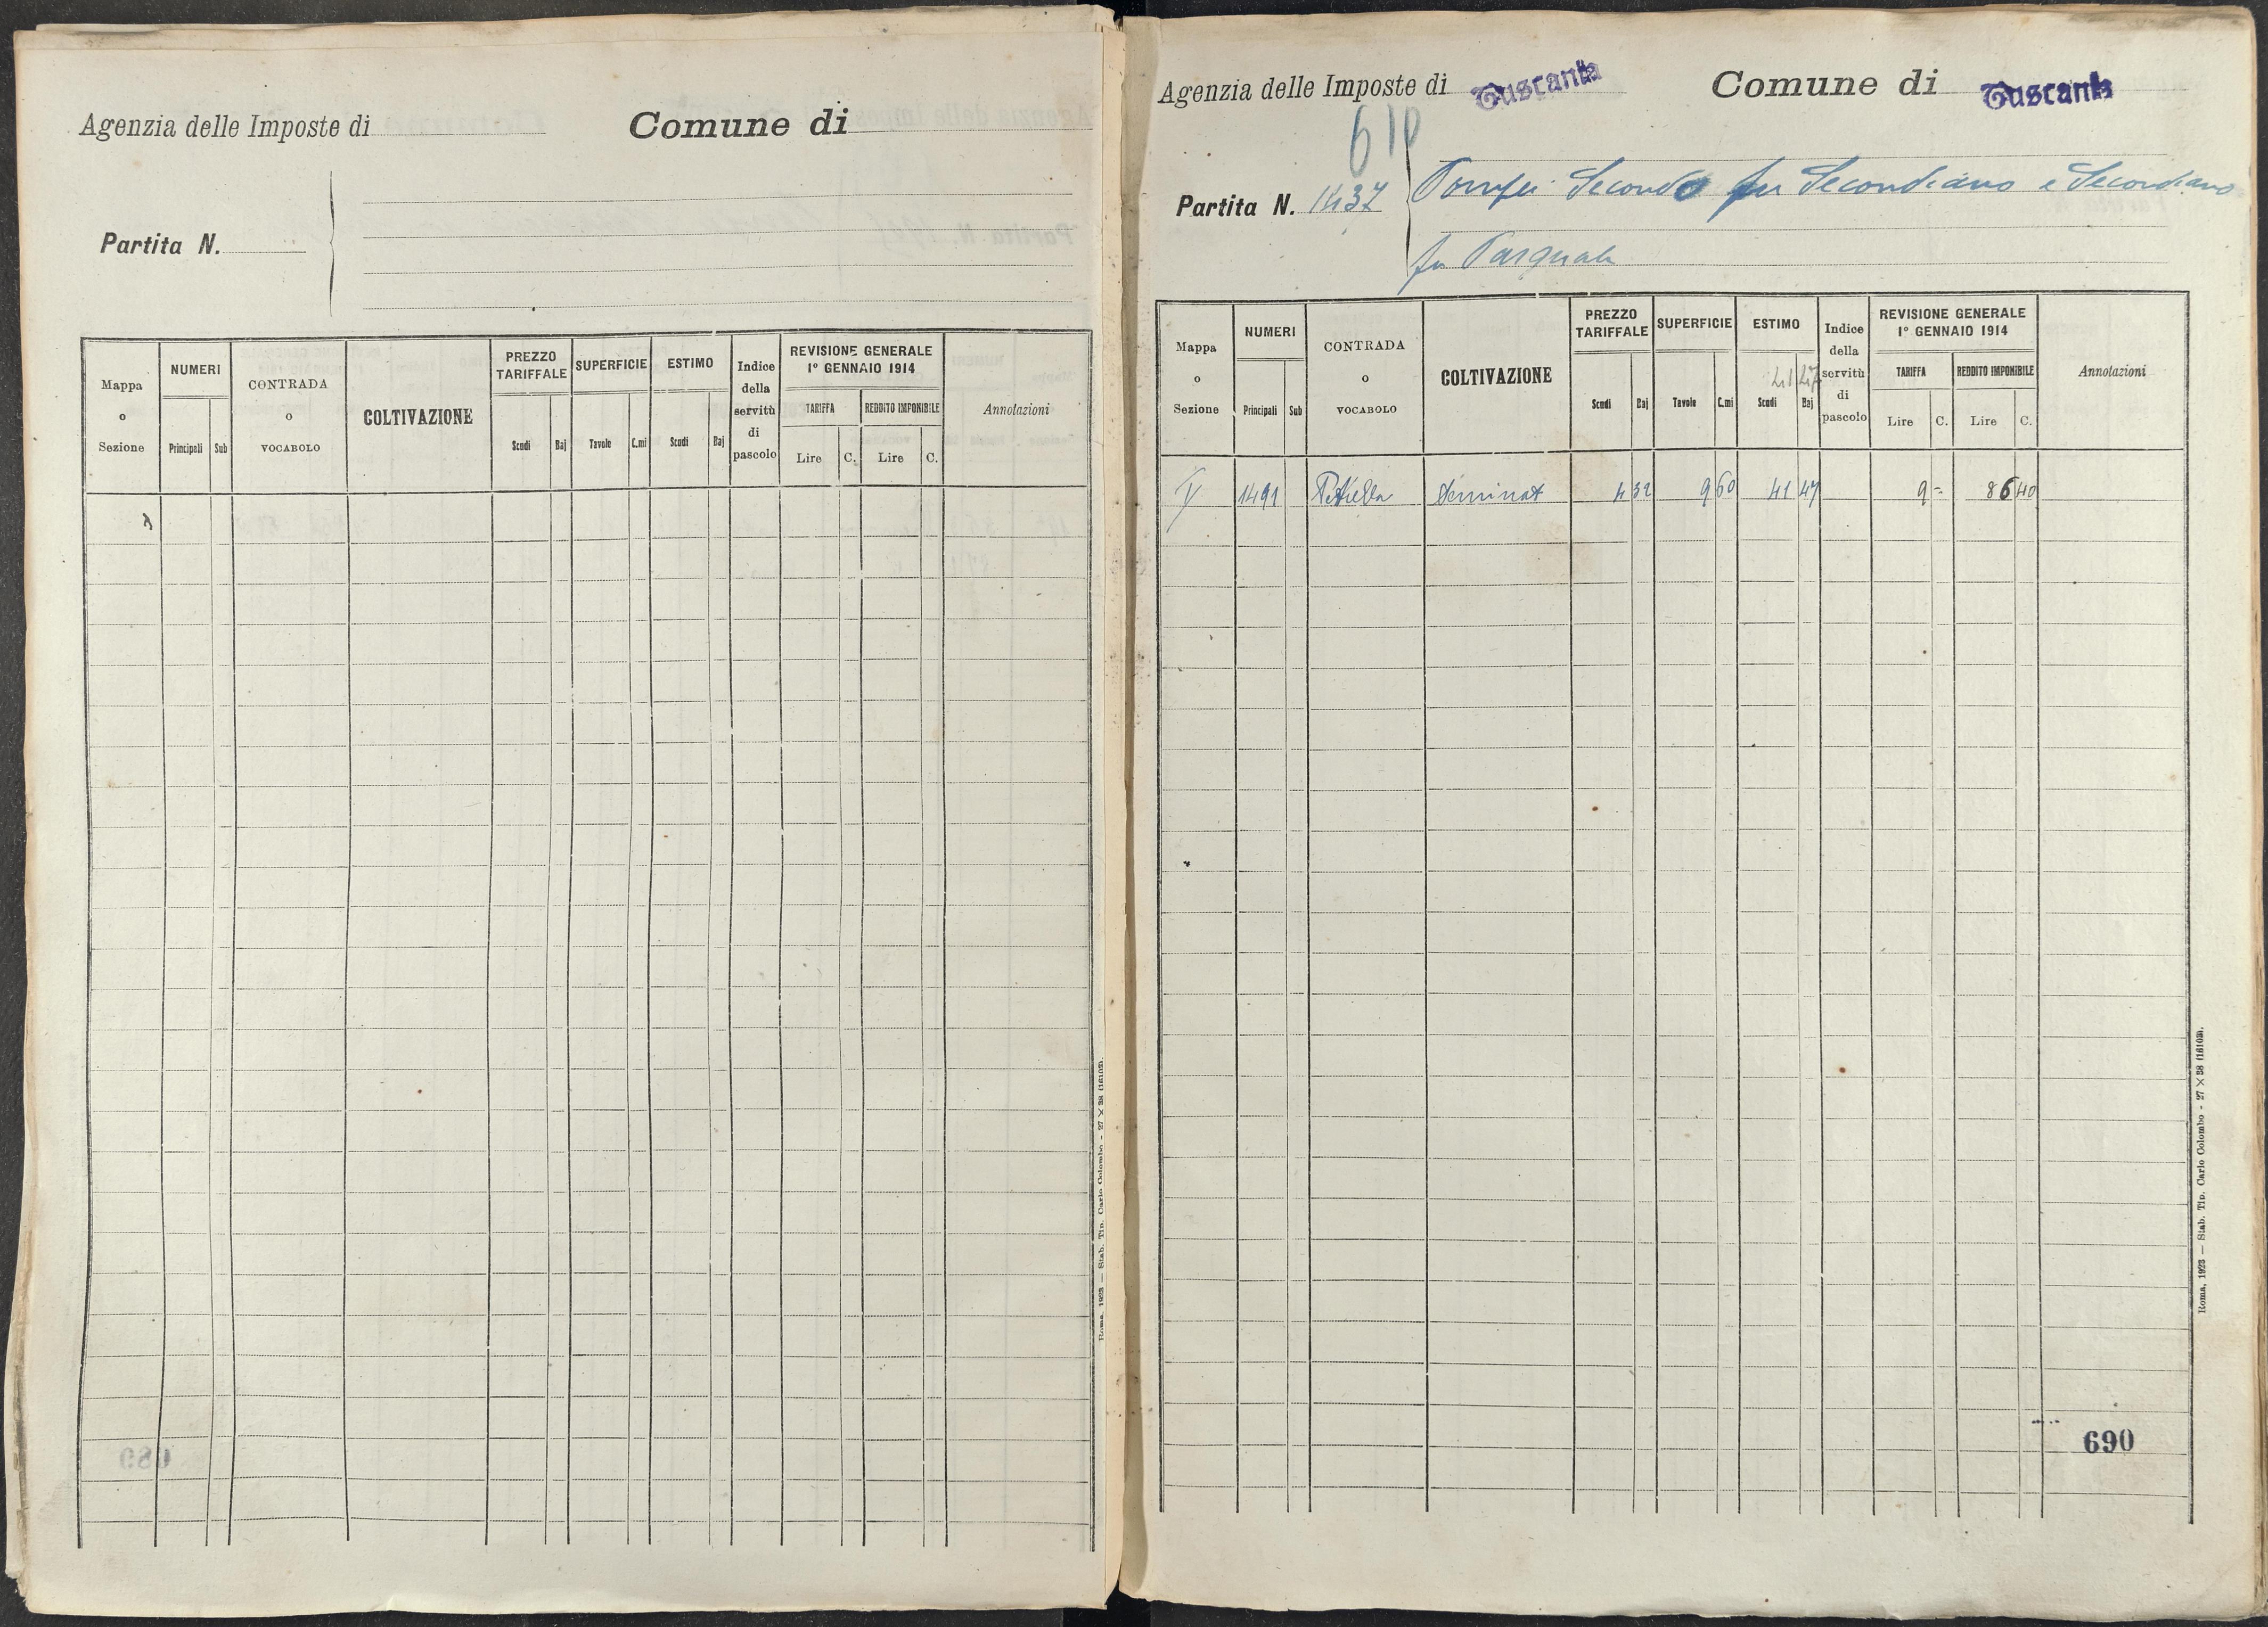 Agenzia delle Imposte di
Comune di
Partita N.
Mappa o Sezione
NUMERI
Principali
Sub
CONTRADA o VOCABOLO
COLTIVAZIONE
PREZZO TARIFFALE
Scudi
Baj
SUPERFICIE
Tavole
C.mi
ESTIMO
Scudi
Baj
Indice della servitù di pascolo
REVISIONE GENERALE
1° GENNAIO 1914
TARIFFA
REDDITO IMPONIBILE
Lire
C.
Lire
C.
Annotazioni
Roma, 1923 — Stab. Tip. Carlo Colombo - 27 × 38 (16103).
Agenzia delle Imposte di Tuscania
Comune di Tuscania
610
Partita N. 1437
Pompei Secondo fu Secondiano e Secondiano
fu Pasquale
Mappa o Sezione
NUMERI
Principali
Sub
CONTRADA o VOCABOLO
COLTIVAZIONE
PREZZO TARIFFALE
Scudi
Baj
SUPERFICIE
Tavole
C.mi
ESTIMO
41 47
Scudi
Baj
Indice della servitù di pascolo
REVISIONE GENERALE
1° GENNAIO 1914
TARIFFA
REDDITO IMPONIBILE
Lire
C.
Lire
C.
Annotazioni
1491 Seminat 4 32 9 60 41 47 9 - 86 40
690
Roma, 1923 — Stab. Tip. Carlo Colombo - 27 × 38 (16103).